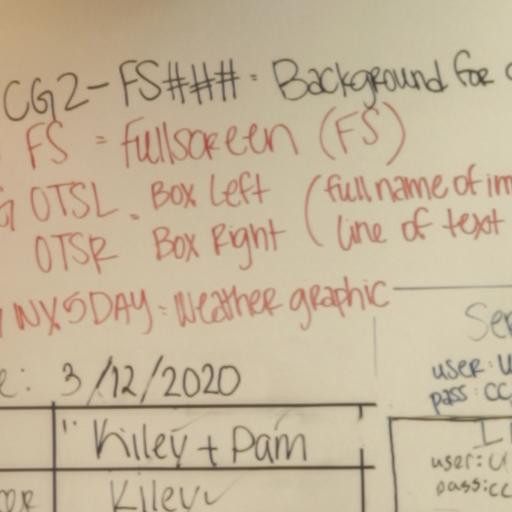 CG2-FS### = Background for
FS = fullscreen (FS)
OTSL . Box Left (full name of im
OTSR Box Right (line of text
WX5DAY = Weather graphic
Ser
e: 3/12/2020
user: U
pass: cc
" Kiley + Pam
user: U
pass: cc
Kiley